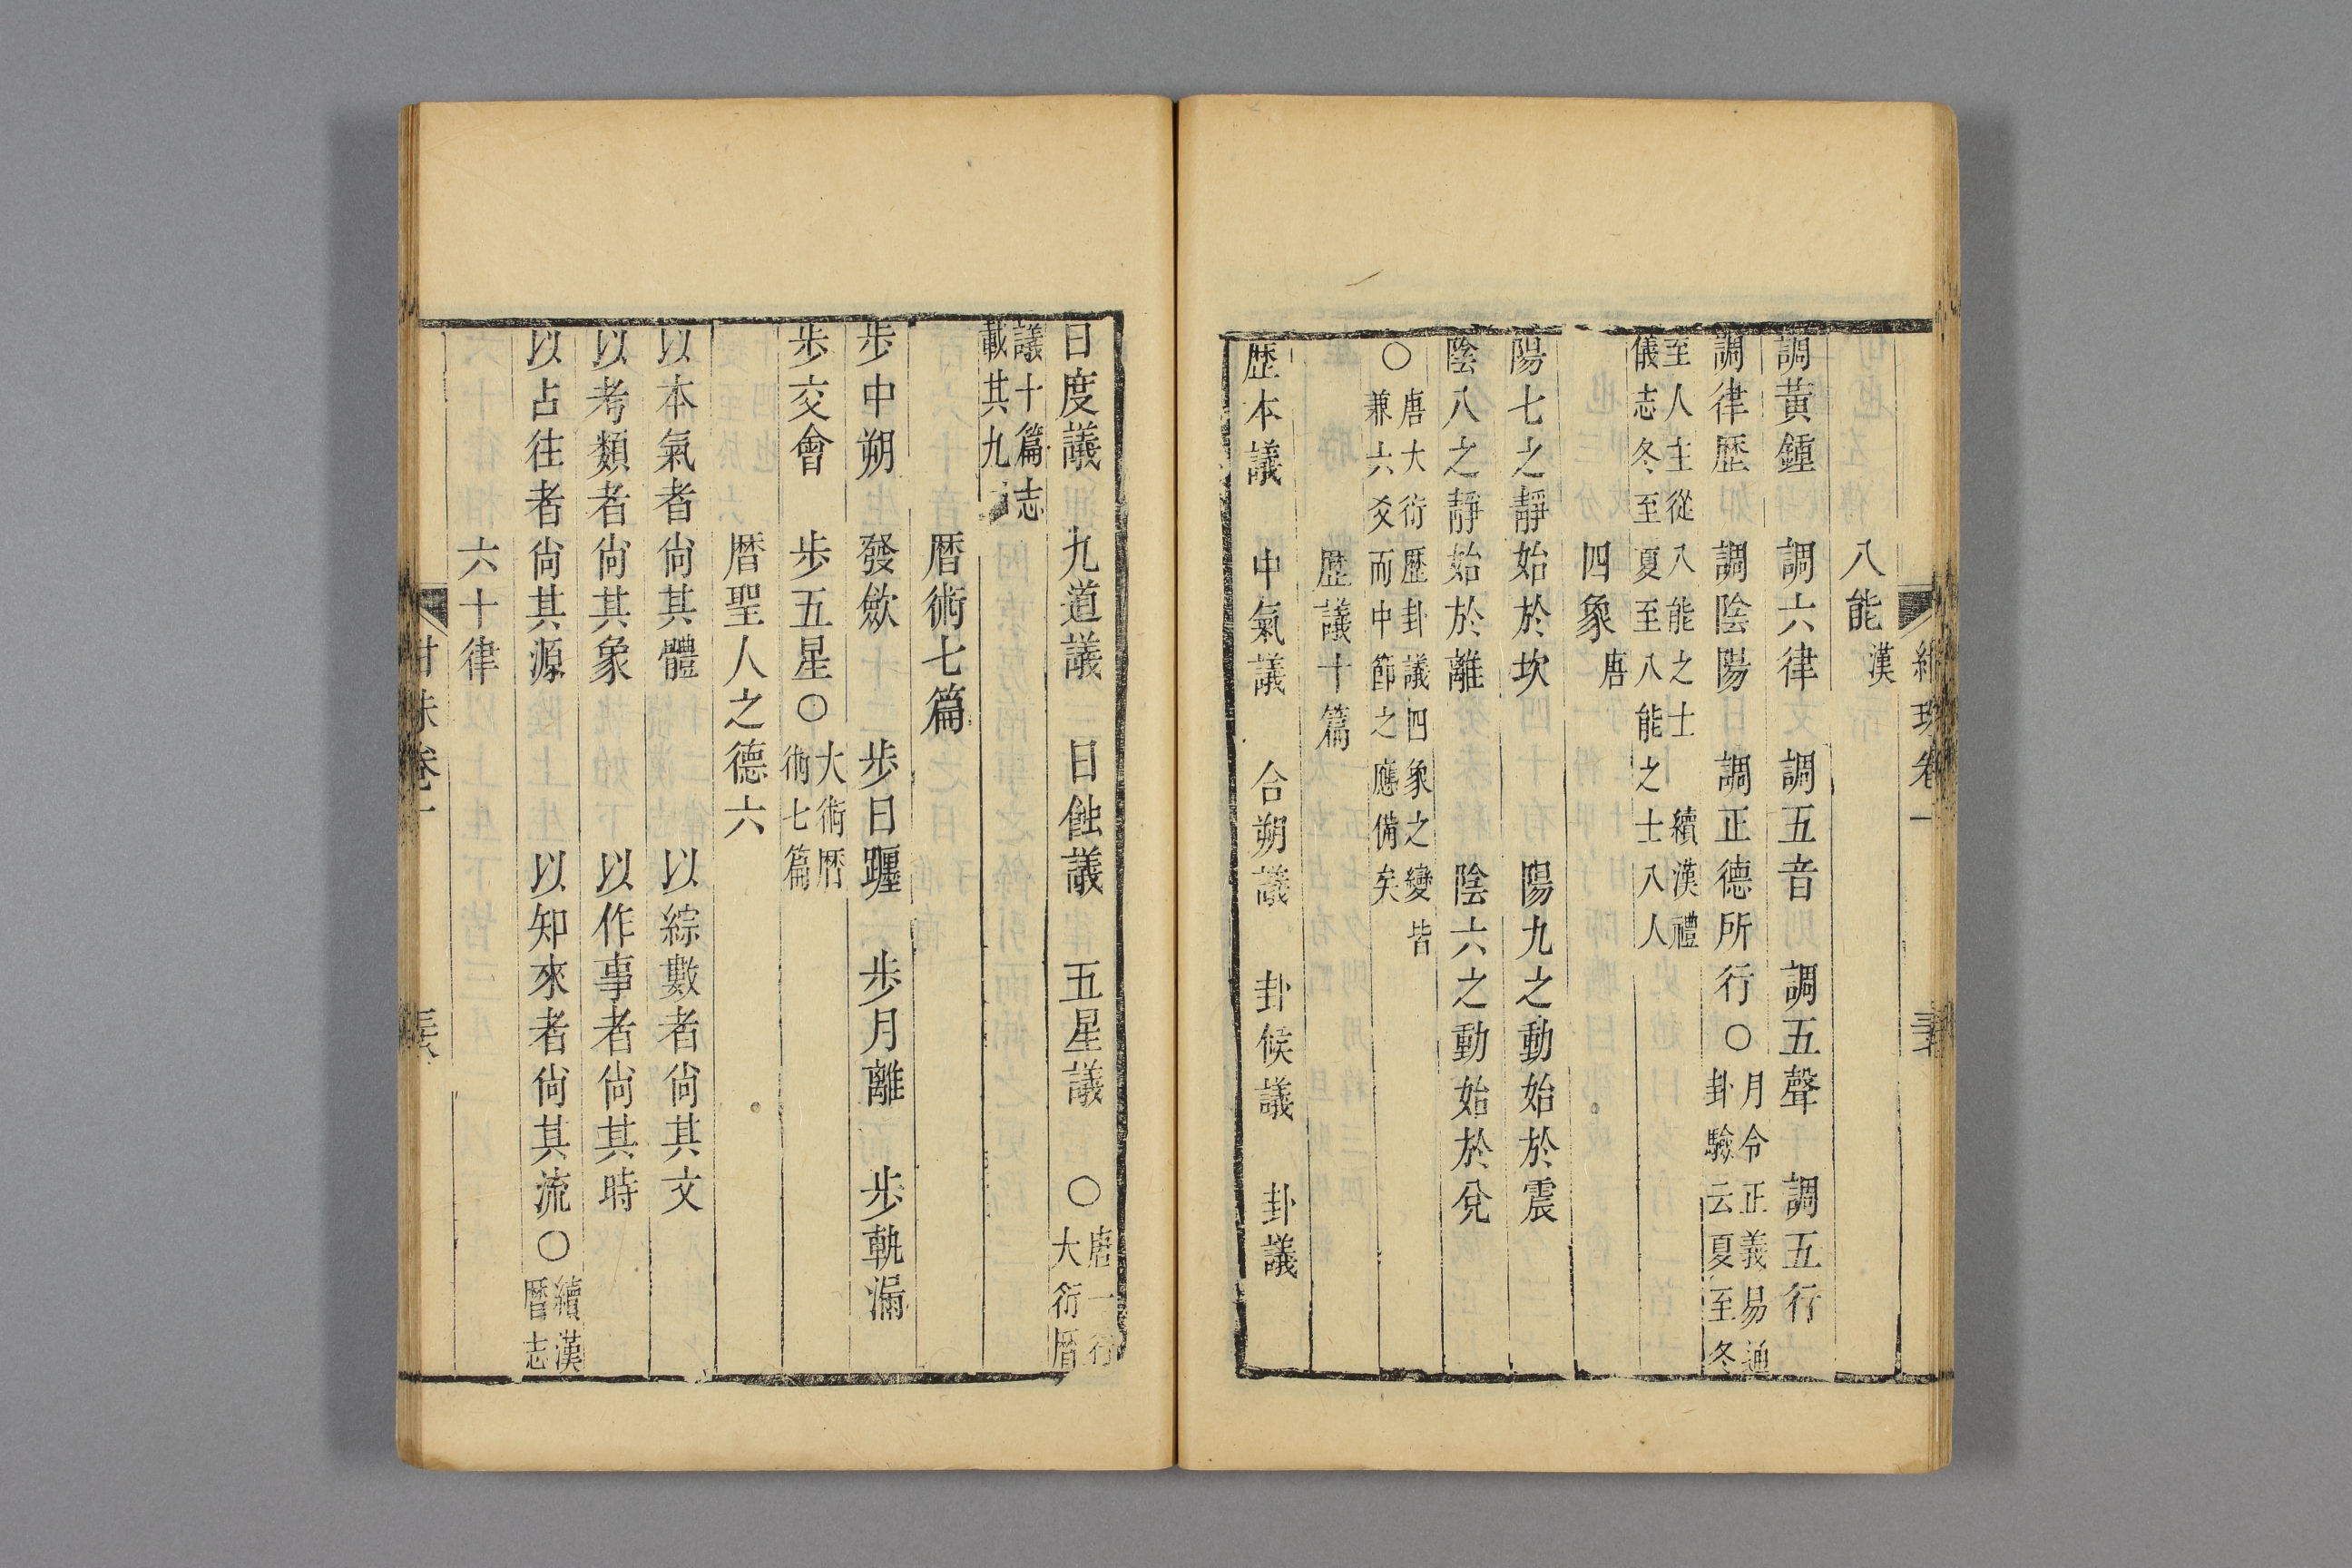 八能漢
調黃鍾　調六律　調五音　調五聲　調五行
調律歷　調陰陽　調正德所行〇月令正義易通
卦驗云夏至冬
至人主從八能之士　續漢禮
儀志冬至夏至八能之士八人
四象唐
陽七之靜始於坎　陽九之動始於震
陰八之靜始於離　陰六之動始於兌
〇唐大衍歷卦議四象之變皆
兼六爻而中節之應備矣
歷議十篇
歷本議　中氣議　合朔議　卦候議　卦議
日度議　九道議　日蝕議　五星議　〇唐一行
大衍曆
議十篇志
載其九
曆術七篇
步中朔　發歛　步日躔　步月離　步軌漏
步交會　步五星〇大術曆
術七篇
曆聖人之德六
以本氣者尙其體　以綜數者尙其文
以考類者尙其象　以作事者尙其時
以占往者尙其源　以知來者尙其流〇續漢
曆志
六十律